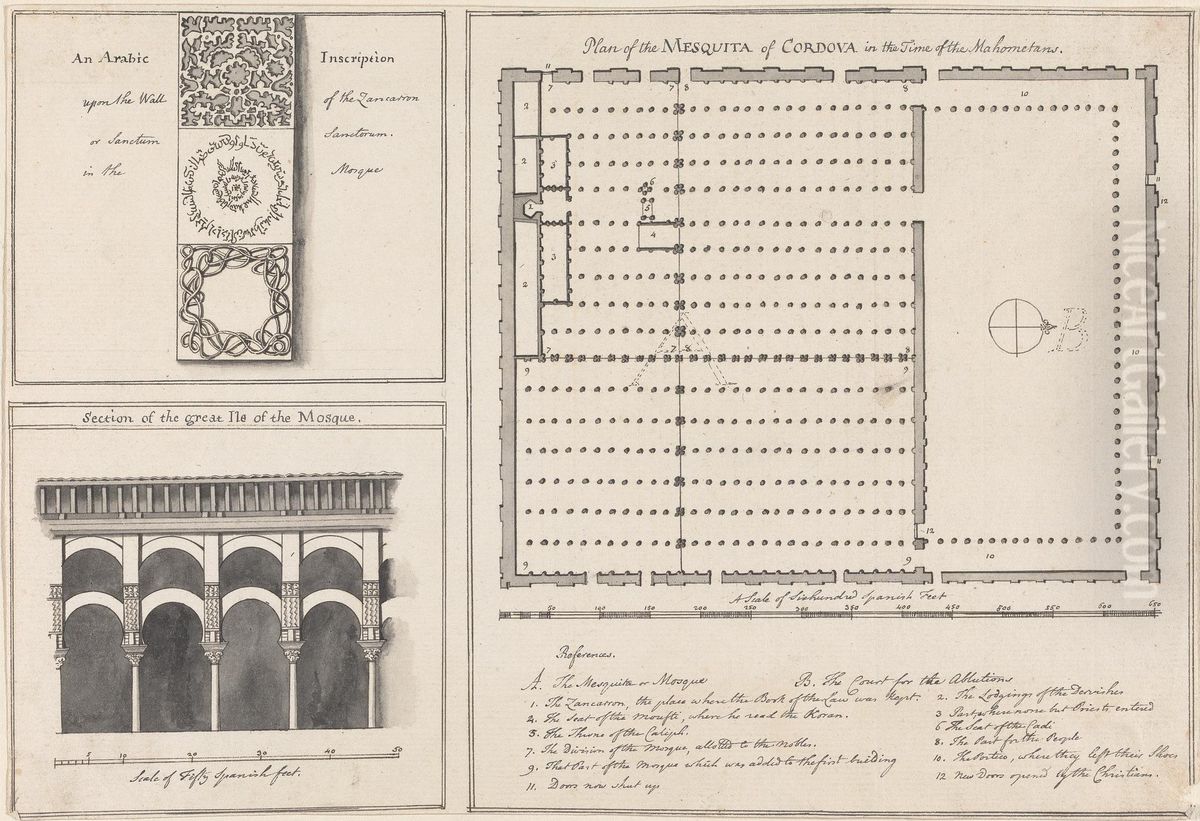 An Arabic Inscription
upon the Wall of the Zancarron
or Sanctum Sanctorum.
in the Mosque
Section of the great Ile of the Mosque.
5 10 20 30 40 50
Scale of Fifty Spanish feet.
Plan of the MESQUITA of CORDOVA in the Time of the Mahometans.
11 7 7 8 8 10
2
2 3
11
12
6
2 5
4
3
2
A B
10
7 7 8 8
9 9
11
12
9 9 10
A Scale of Sixhundred Spanish Feet
50 100 150 200 250 300 350 400 450 500 550 600 650
References.
A. The Mesquita or Mosque B. The Court for the Ablutions
1. The Zancarron, the place where the Book of the Law was kept. 2. The Lodgings of the Dervishes
4. The Seat of the Moufti, where he read the Koran. 3 Part where none but Priests entered
5. The Throne of the Caliph. 6 The Seat of the Cadi
7. The Division of the Mosque, allotted to the Nobles. 8. The Part for the People
9. That Part of the Mosque which was added to the first building 10. The Portico, where they left their Shoes
11. Doors now shut up 12 New Doors open'd by the Christians.
NiceArtGallery.com